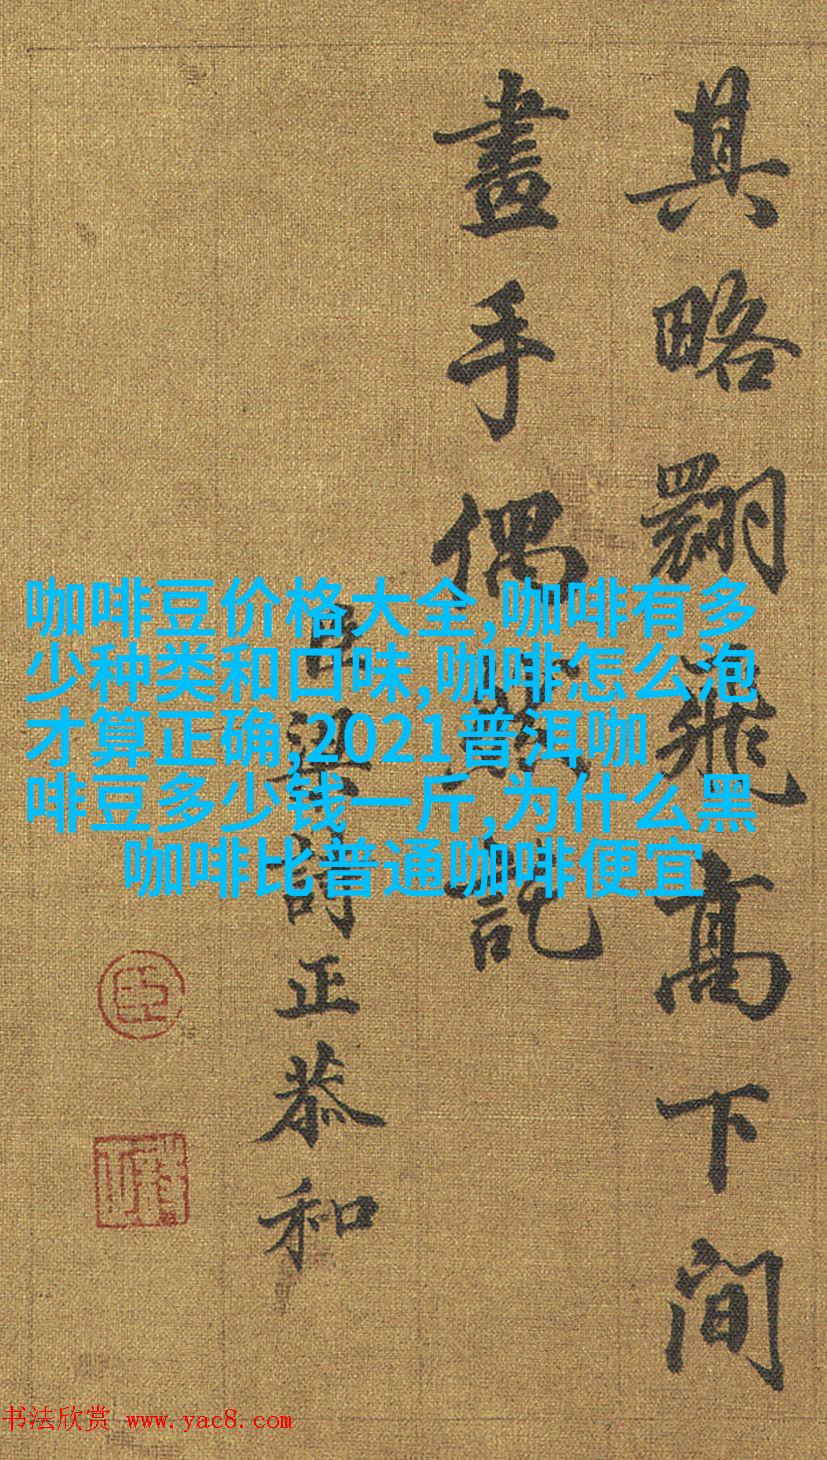 其略翾飛高下間
畫手偶託
臣梁詩正恭和
臣
咖啡豆价格大全,咖啡有多
少种类和口味,咖啡怎么泡
才算正确,2021普洱咖
啡豆多少钱一斤,为什么黑
咖啡比普通咖啡便宜
书法欣赏 www.yac8.com